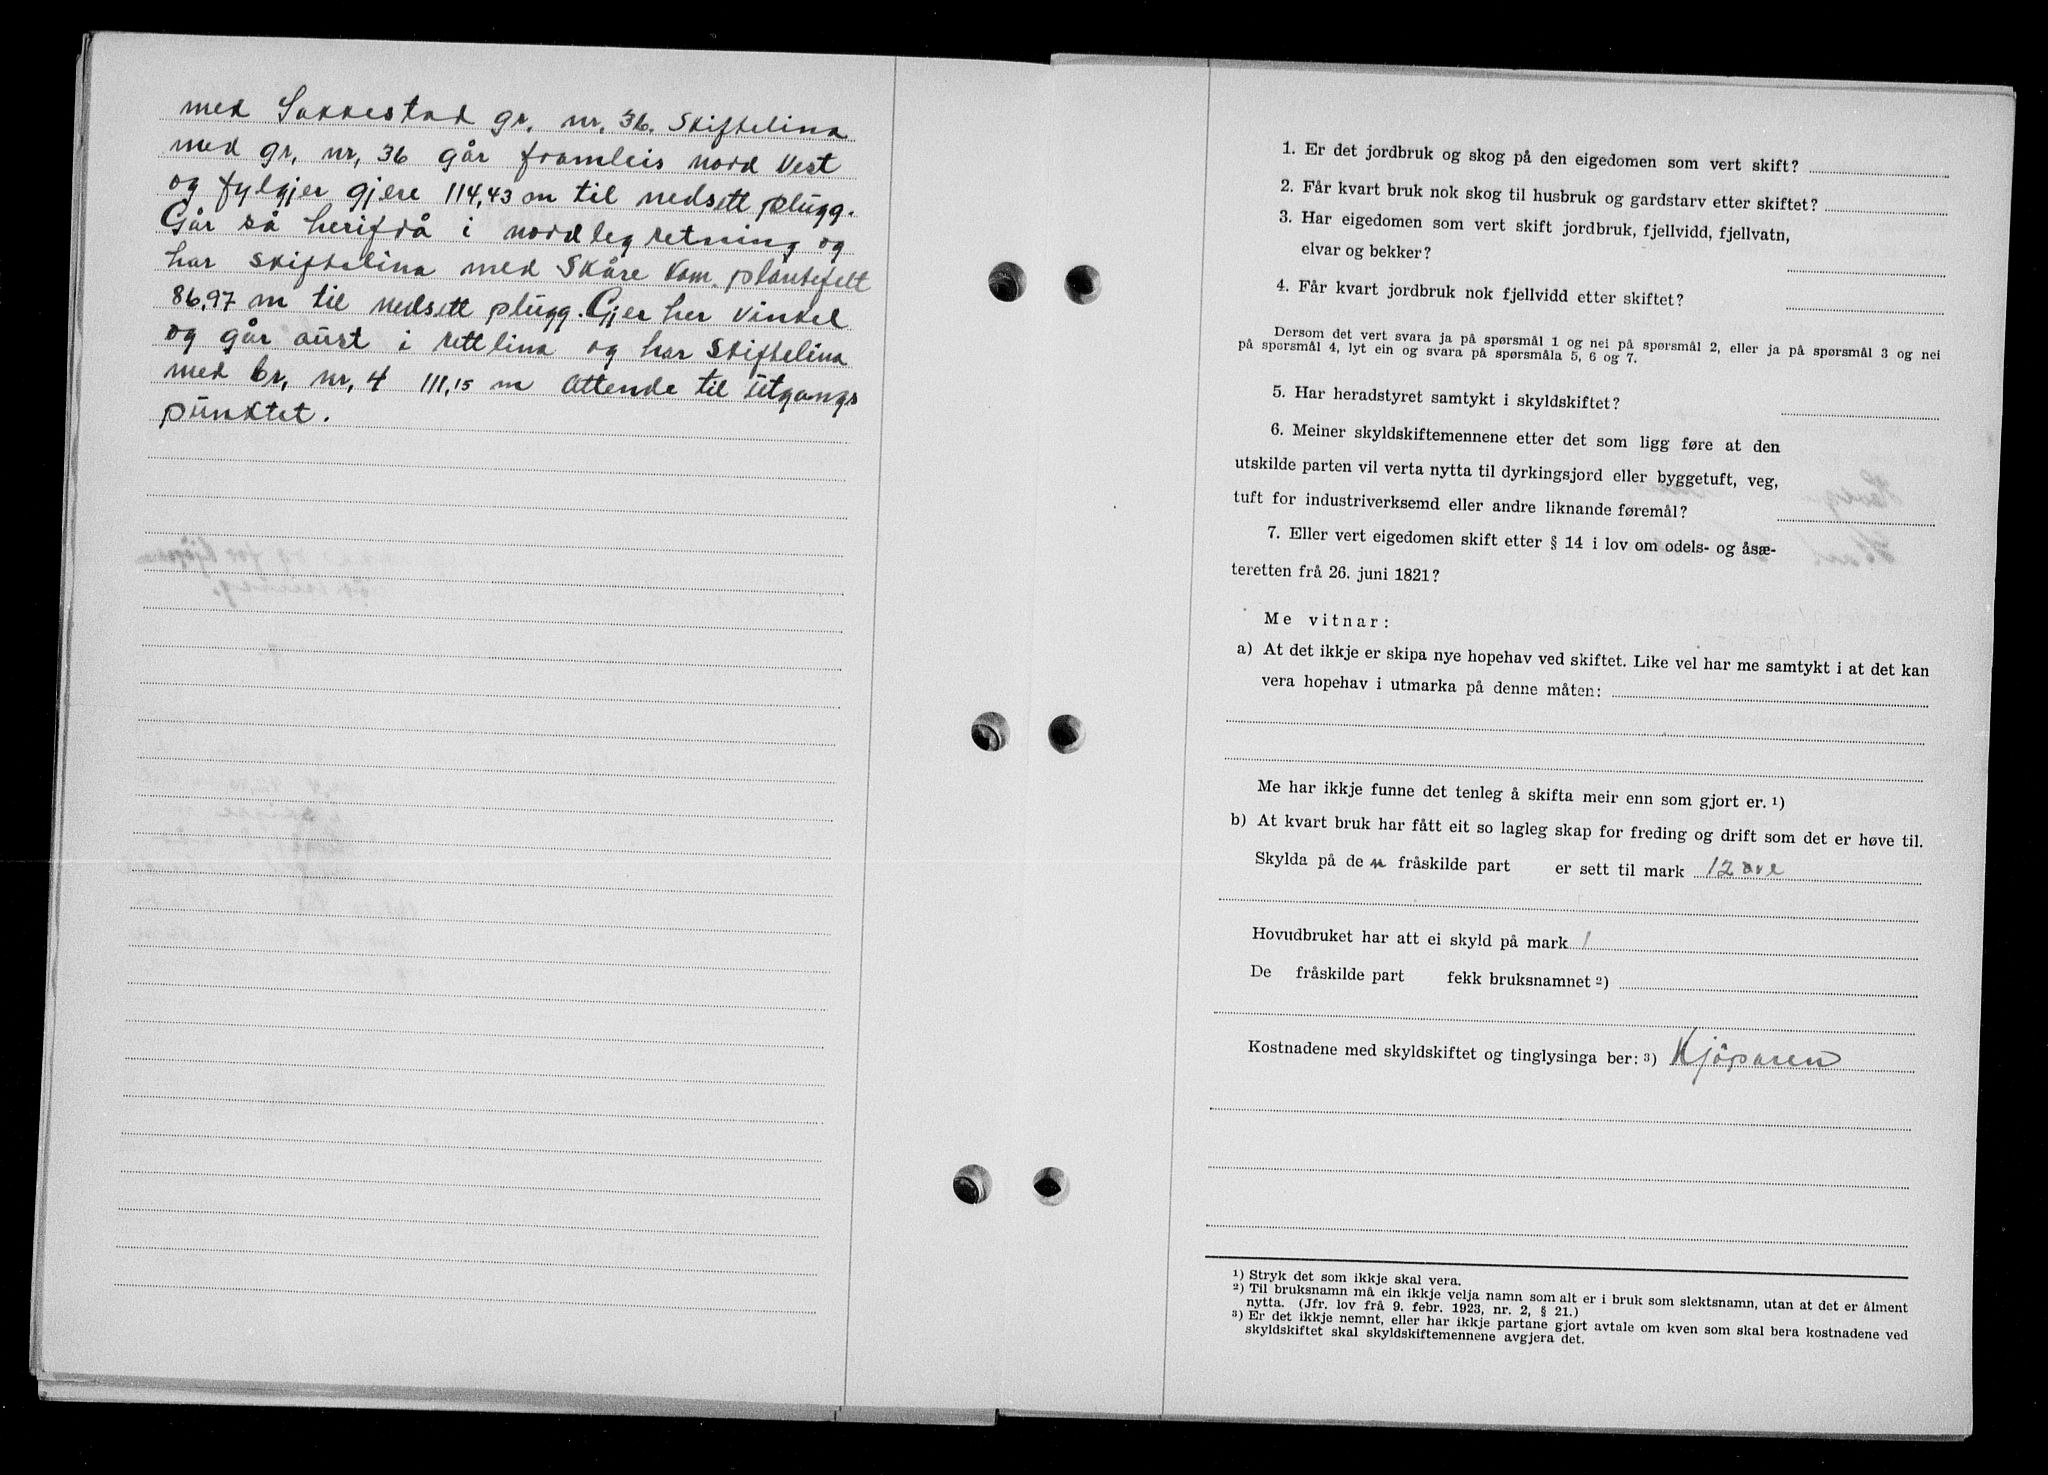 med Sakkestad gr. nr. 36. Skiftelina
med gr. nr. 36 går framleis nord Vest
og fylgjer gjere 114,43 m til nedsett plugg.
Går så herifrå i nordleg retning og
har skiftelina med Skåre Kom. plantefelt
86,97 m til nedsett plugg. Gjer her vinkel
og går aust i rettlina og har Skiftelina
med br. nr. 4 111,15 m Attende til Utgangs
punktet.
1. Er det jordbruk og skog på den eigedomen som vert skift?
2. Får kvart bruk nok skog til husbruk og gardstarv etter skiftet?
3. Har eigedomen som vert skift jordbruk, fjellvidd, fjellvatn,
elvar og bekker?
4. Får kvart jordbruk nok fjellvidd etter skiftet?
Dersom det vert svara ja på spørsmål 1 og nei på spørsmål 2, eller ja på spørsmål 3 og nei
på spørsmål 4, lyt ein og svara på spørsmåla 5, 6 og 7.
5. Har heradstyret samtykt i skyldskiftet?
6. Meiner skyldskiftemennene etter det som ligg føre at den
utskilde parten vil verta nytta til dyrkingsjord eller byggetuft, veg,
tuft for industriverksemd eller andre liknande føremål?
7. Eller vert eigedomen skift etter § 14 i lov om odels- og åsæ-
teretten frå 26. juni 1821?
Me vitnar:
a) At det ikkje er skipa nye hopehav ved skiftet. Like vel har me samtykt i at det kan
vera hopehav i utmarka på denne måten:
Me har ikkje funne det tenleg å skifta meir enn som gjort er. 1)
b) At kvart bruk har fått eit so lagleg skap for freding og drift som det er høve til.
Skylda på de n fråskilde part er sett til mark 12 øre
Hovudbruket har att ei skyld på mark 1
De fråskilde part fekk bruksnamnet 2)
Kostnadene med skyldskiftet og tinglysinga ber: 3) Kjöparen
1) Stryk det som ikkje skal vera.
2) Til bruksnamn må ein ikkje velja namn som alt er i bruk som slektsnamn, utan at det er ålment
nytta. (Jfr. lov frå 9. febr. 1923, nr. 2, § 21.)
3) Er det ikkje nemnt, eller har ikkje partane gjort avtale om kven som skal bera kostnadene ved
skyldskiftet skal skyldskiftemennene avgjera det.